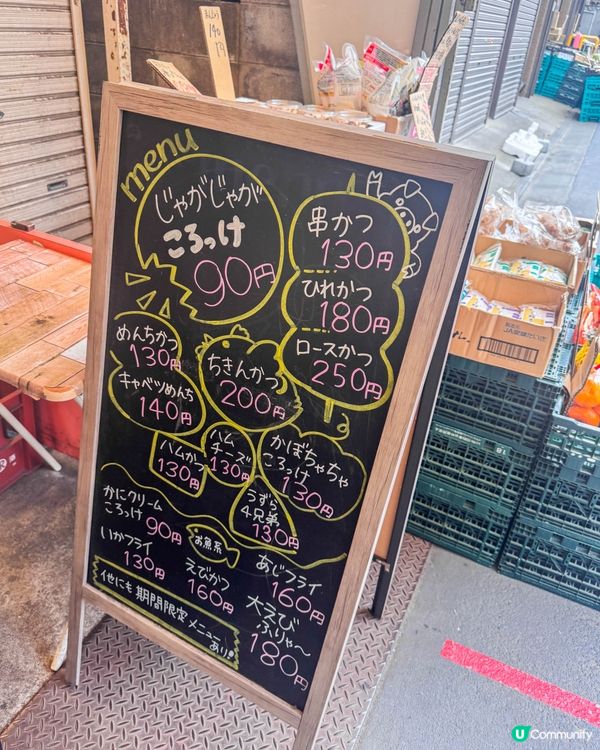 menu
じゃがじゃが
ころっけ
90円
串かつ
130円
ひれかつ
180円
ロースかつ
250円
めんちかつ
130円
キャベツめんち
140円
ちきんかつ
200円
ハムかつ
130円
ハム
チーズ
130円
かぼちゃちゃ
ころっけ
130円
うずら
4兄弟
130円
かにクリーム
ころっけ
90円
お魚系
いかフライ
130円
えびかつ
160円
あじフライ
160円
大えび
ふりゃ〜
180円
他にも期間限定メニュー
あり!
U Community